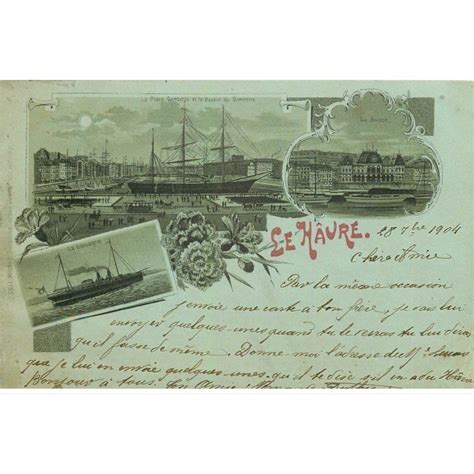 La Place Gambetta et le Bassin du Commerce
La Bourse
LE HÂVRE.
28 7bre 1904
Chère Amie
Par la même occasion
j'envoie une carte à ton frère, je vais lui
envoyer quelques-unes quand tu le verras tu lui diras
qu'il fasse de même. Donne-moi l'adresse de Mr
que je lui en envoie quelques unes, qu'il te dise s'il en a du Hâvre
Bonjour à tous. Ton Amie